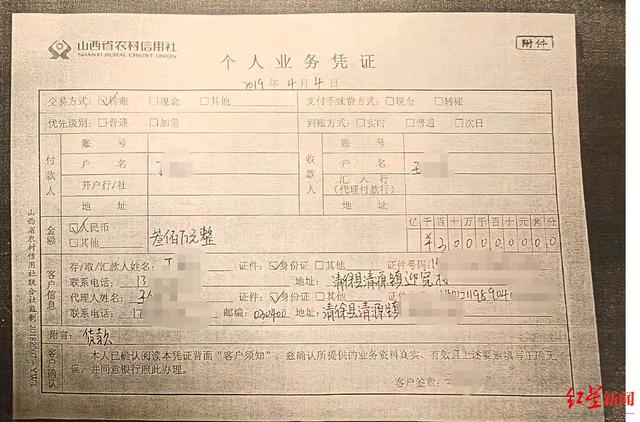 山西省农村信用社
SHANXI RURAL CREDIT UNION
附件
个人业务凭证
2019年4月4日
交易方式: ☑转账 □现金 □其他 支付手续费方式: □现金 □转账
优先级别: □普通 □加急 到账方式: □实时 □普通 □次日
付款人 账号 收款人 账号
户名 丁 户名 王
开户行/社 汇入行(代理付款行)
地址 地址
金额 ☑人民币 叁佰万元整 亿千百十万千百十元角分
□其他 ¥300000000
客户信息
存/取/汇款人姓名: 丁 证件: ☑身份证 □其他 证件号码:
联系电话: 13 地址: 清徐县清源镇迎宪
代理人姓名: 证件: ☑身份证 □其他
联系电话: 13 邮编: 030400 地址: 清徐县清源镇
附言: 货款
客户确认
本人已确认阅读本凭证背面“客户须知”,兹确认所提供的业务资料真实、有效且上述要素填写正确无
误,并同意银行照此办理。
客户签章:
山西省农村信用社联合社监制
红星新闻